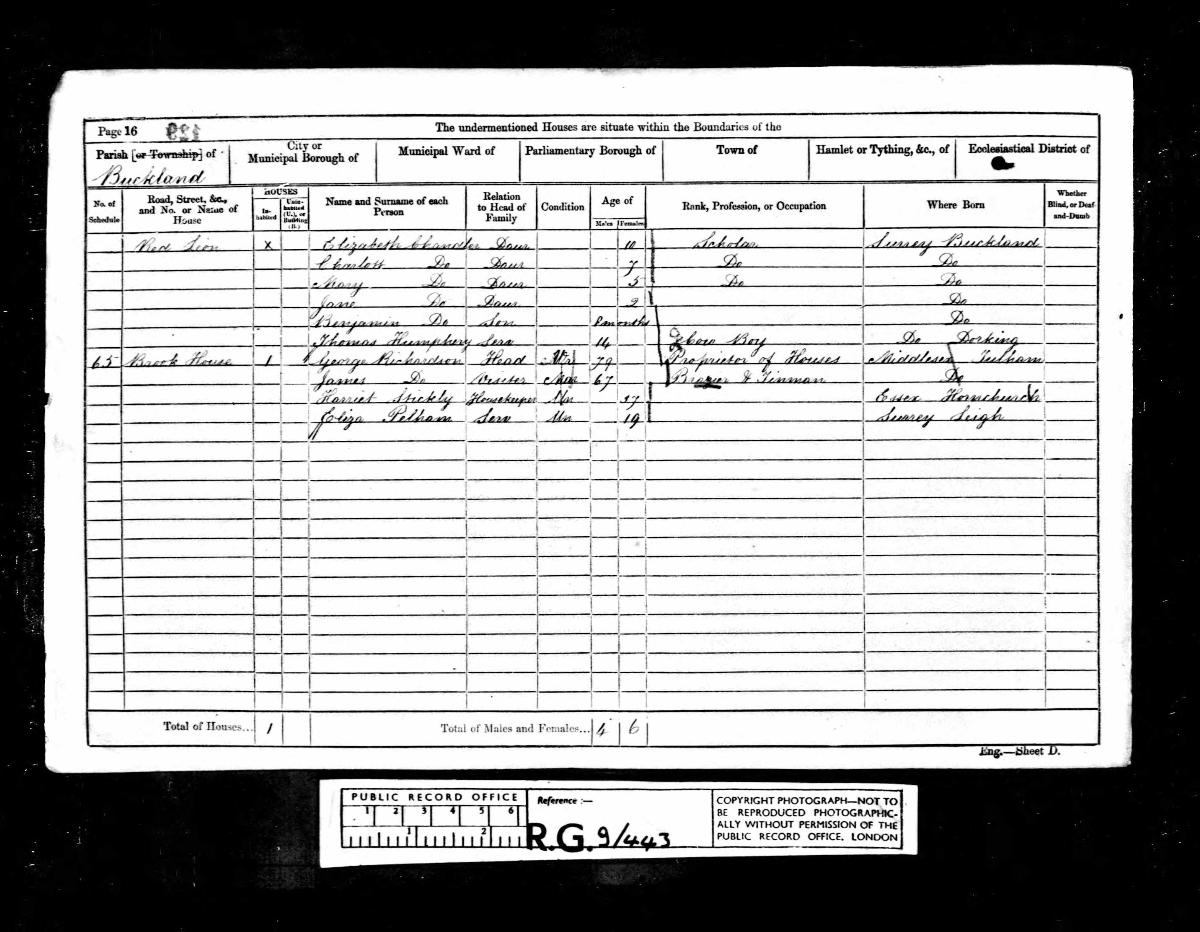 Page 16 The undermentioned Houses are situate within the Boundaries of the
Parish [or Township] of City or Municipal Borough of Municipal Ward of Parliamentary Borough of Town of Hamlet or Tything, &c., of Ecclesiastical District of
Buckland
No. of Schedule Road, Street, &c., and No. or Name of House HOUSES Inhabited Uninhabited (U.), or Building (B.) Name and Surname of each Person Relation to Head of Family Condition Age of Males Females Rank, Profession, or Occupation Where Born Whether Blind, or Deaf-and-Dumb
Red Lion X Elizabeth Chandler Daur 10 Scholar Surrey Buckland
Charlott Do Daur 7 Do Do
Mary Do Daur 5 Do Do
Jane Do Daur 2 Do
Benjamin Do Son 8 months Do
Thomas Humphery Serv 14 Boy Do Dorking
65 Brook House 1 George Richardson Head 79 Proprietor of Houses Middlesex
James Do Visiter Mar 67 Brazier & Tinman Do
Harriet Stickly Housekeeper Un Essex Hornchurch
Eliza Pelham Serv Un 19 Surrey Leigh
Total of Houses... 1 Total of Males and Females... 4 6
Eng.—Sheet D.
PUBLIC RECORD OFFICE
1 2 3 4 5 6
1 2
Reference :—
R.G. 9/443
COPYRIGHT PHOTOGRAPH—NOT TO
BE REPRODUCED PHOTOGRAPHIC-
ALLY WITHOUT PERMISSION OF THE
PUBLIC RECORD OFFICE, LONDON